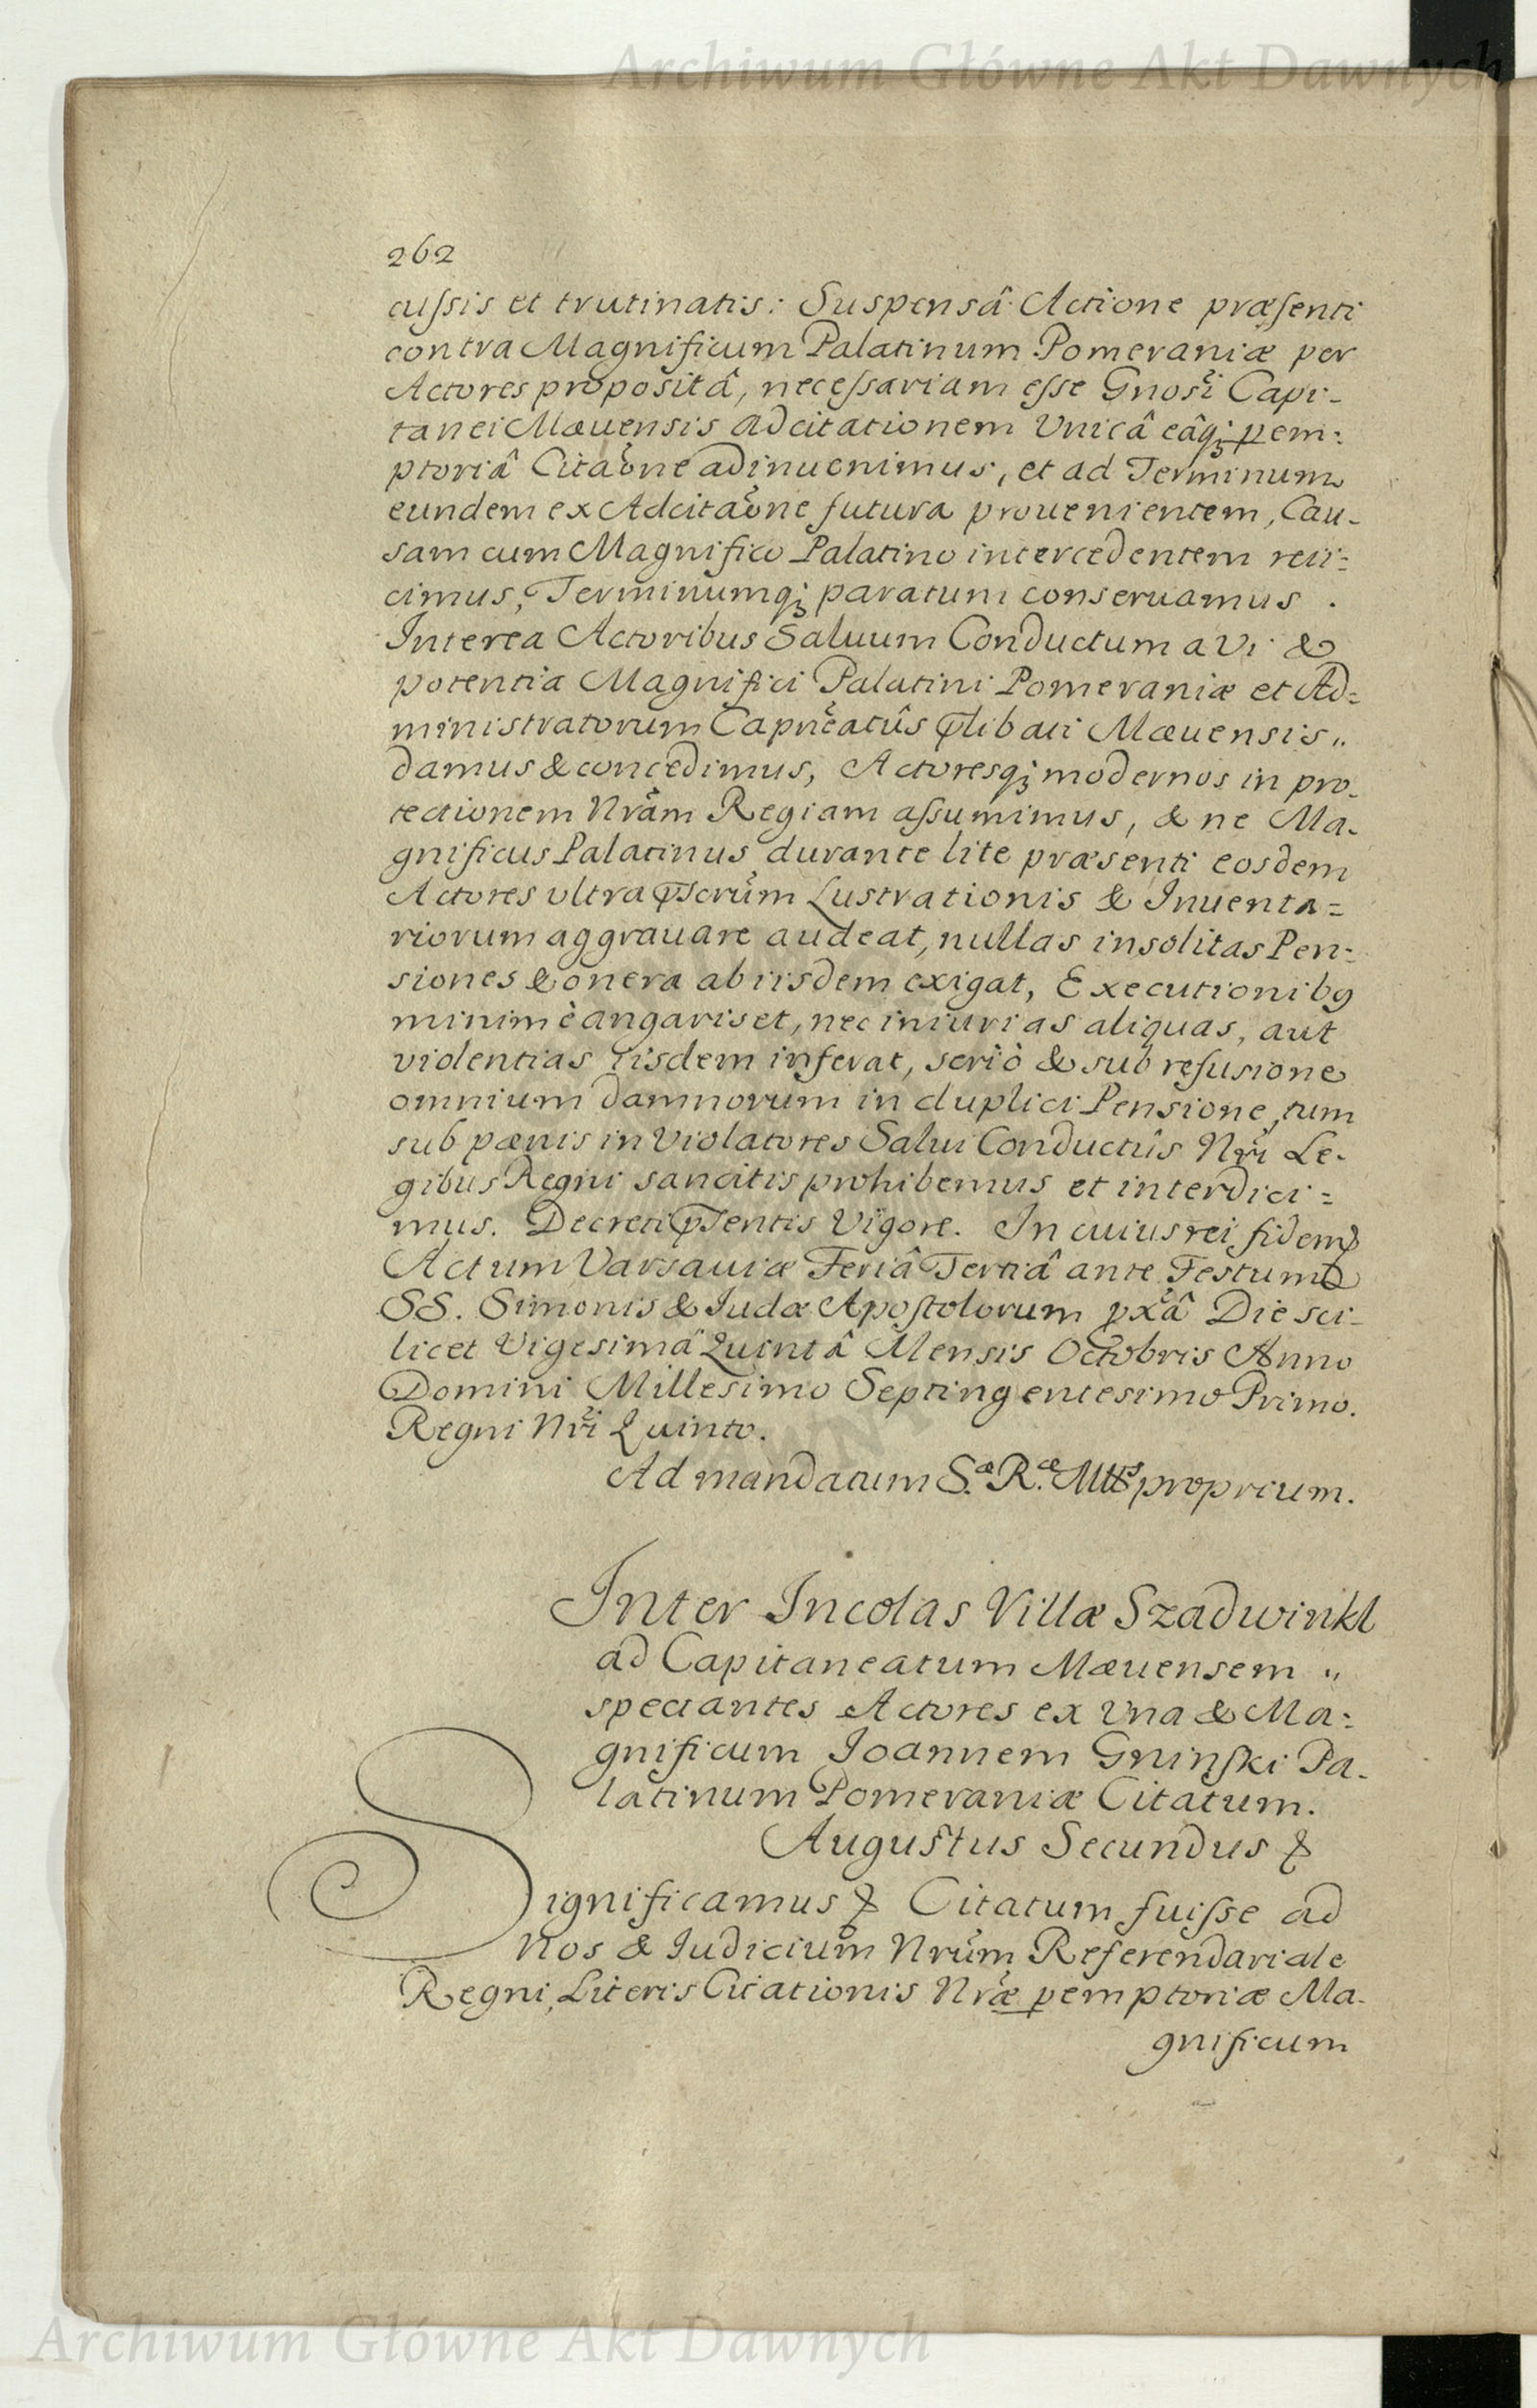 Archiwum Główne Akt Dawnych
262
cussis et trutinatis: Suspensâ Actione præsenti
contra Magnificum Palatinum Pomeraniæ per
Actores propositâ, necessariam esse Gnosi Capi-
tanei Mæuensis adcitationem Vnicâ eâq; pem:
ptoriâ Citaõne adinuenimus, et ad Terminum
eundem ex Adcitaõne futura prouenientem, Cau-
sam cum Magnifico Palatino intercedentem reii:
cimus, Terminumq; paratum conseruamus.
Interea Actoribus Saluum Conductum a vi &
potentia Magnifici Palatini Pomeraniæ et Ad=
ministratorum Capneatûs Mæuensis„
damus & concedimus, Actoresq; modernos in pro-
tectionem Nram Regiam assumimus, & ne Ma-
gnificus Palatinus durante lite præsenti eosdem
Actores vltra Lustrationis & Inuenta=
riorum aggrauare audeat, nullas insolitas Pen:
siones & onera ab iisdem exigat, Executionibg
minimè angariset, nec iniurias aliquas, aut
violentias iisdem inferat, seriò & sub refusione
omnium damnorum in duplici Pensione, tum
sub pœnis in Violatores Salui Conductûs Nri Le-
gibus Regni sancitis prohibemus et interdici=
mus. Decreti pntis Vigore. In cuius rei fidem
Actum Varsauiæ Feriâ Tertiâ ante Festum
SS. Simonis & Iudæ Apostolorum pxâ Die sci-
licet Vigesimâ Quintâ Mensis Octobris Anno
Domini Millesimo Septingentesimo Primo.
Regni Nri Quinto.
Ad mandatum S.æ R.æ Mttis proprium.
Inter Incolas Villæ Szadwinkl
ad Capitaneatum Mæuensem „
spectantes Actores ex vna & Ma:
gnificum Joannem Gninski Pa-
latinum Pomeraniæ Citatum.
Augustus Secundus &
Significamus & Citatum fuisse ad
Nos & Iudicium Nrum Referendariale
Regni, Literis Citationis Nræ pemptoriæ Ma-
gnificum
Archiwum Główne Akt Dawnych